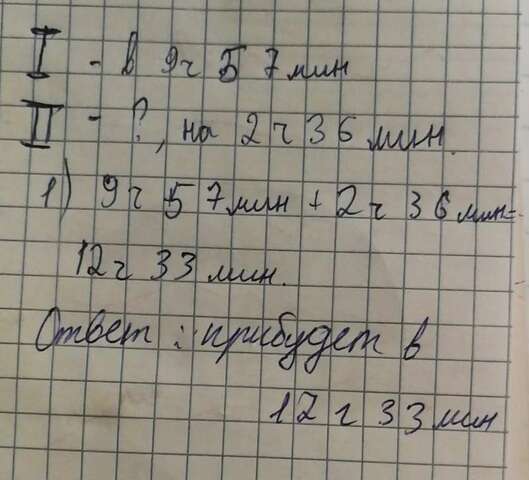 I - в 9ч 57мин
II - ?, на 2ч 36 мин.
1) 9ч 57мин + 2ч 36мин=
12ч 33 мин.
Ответ: прибудет в
12 ч 33 мин